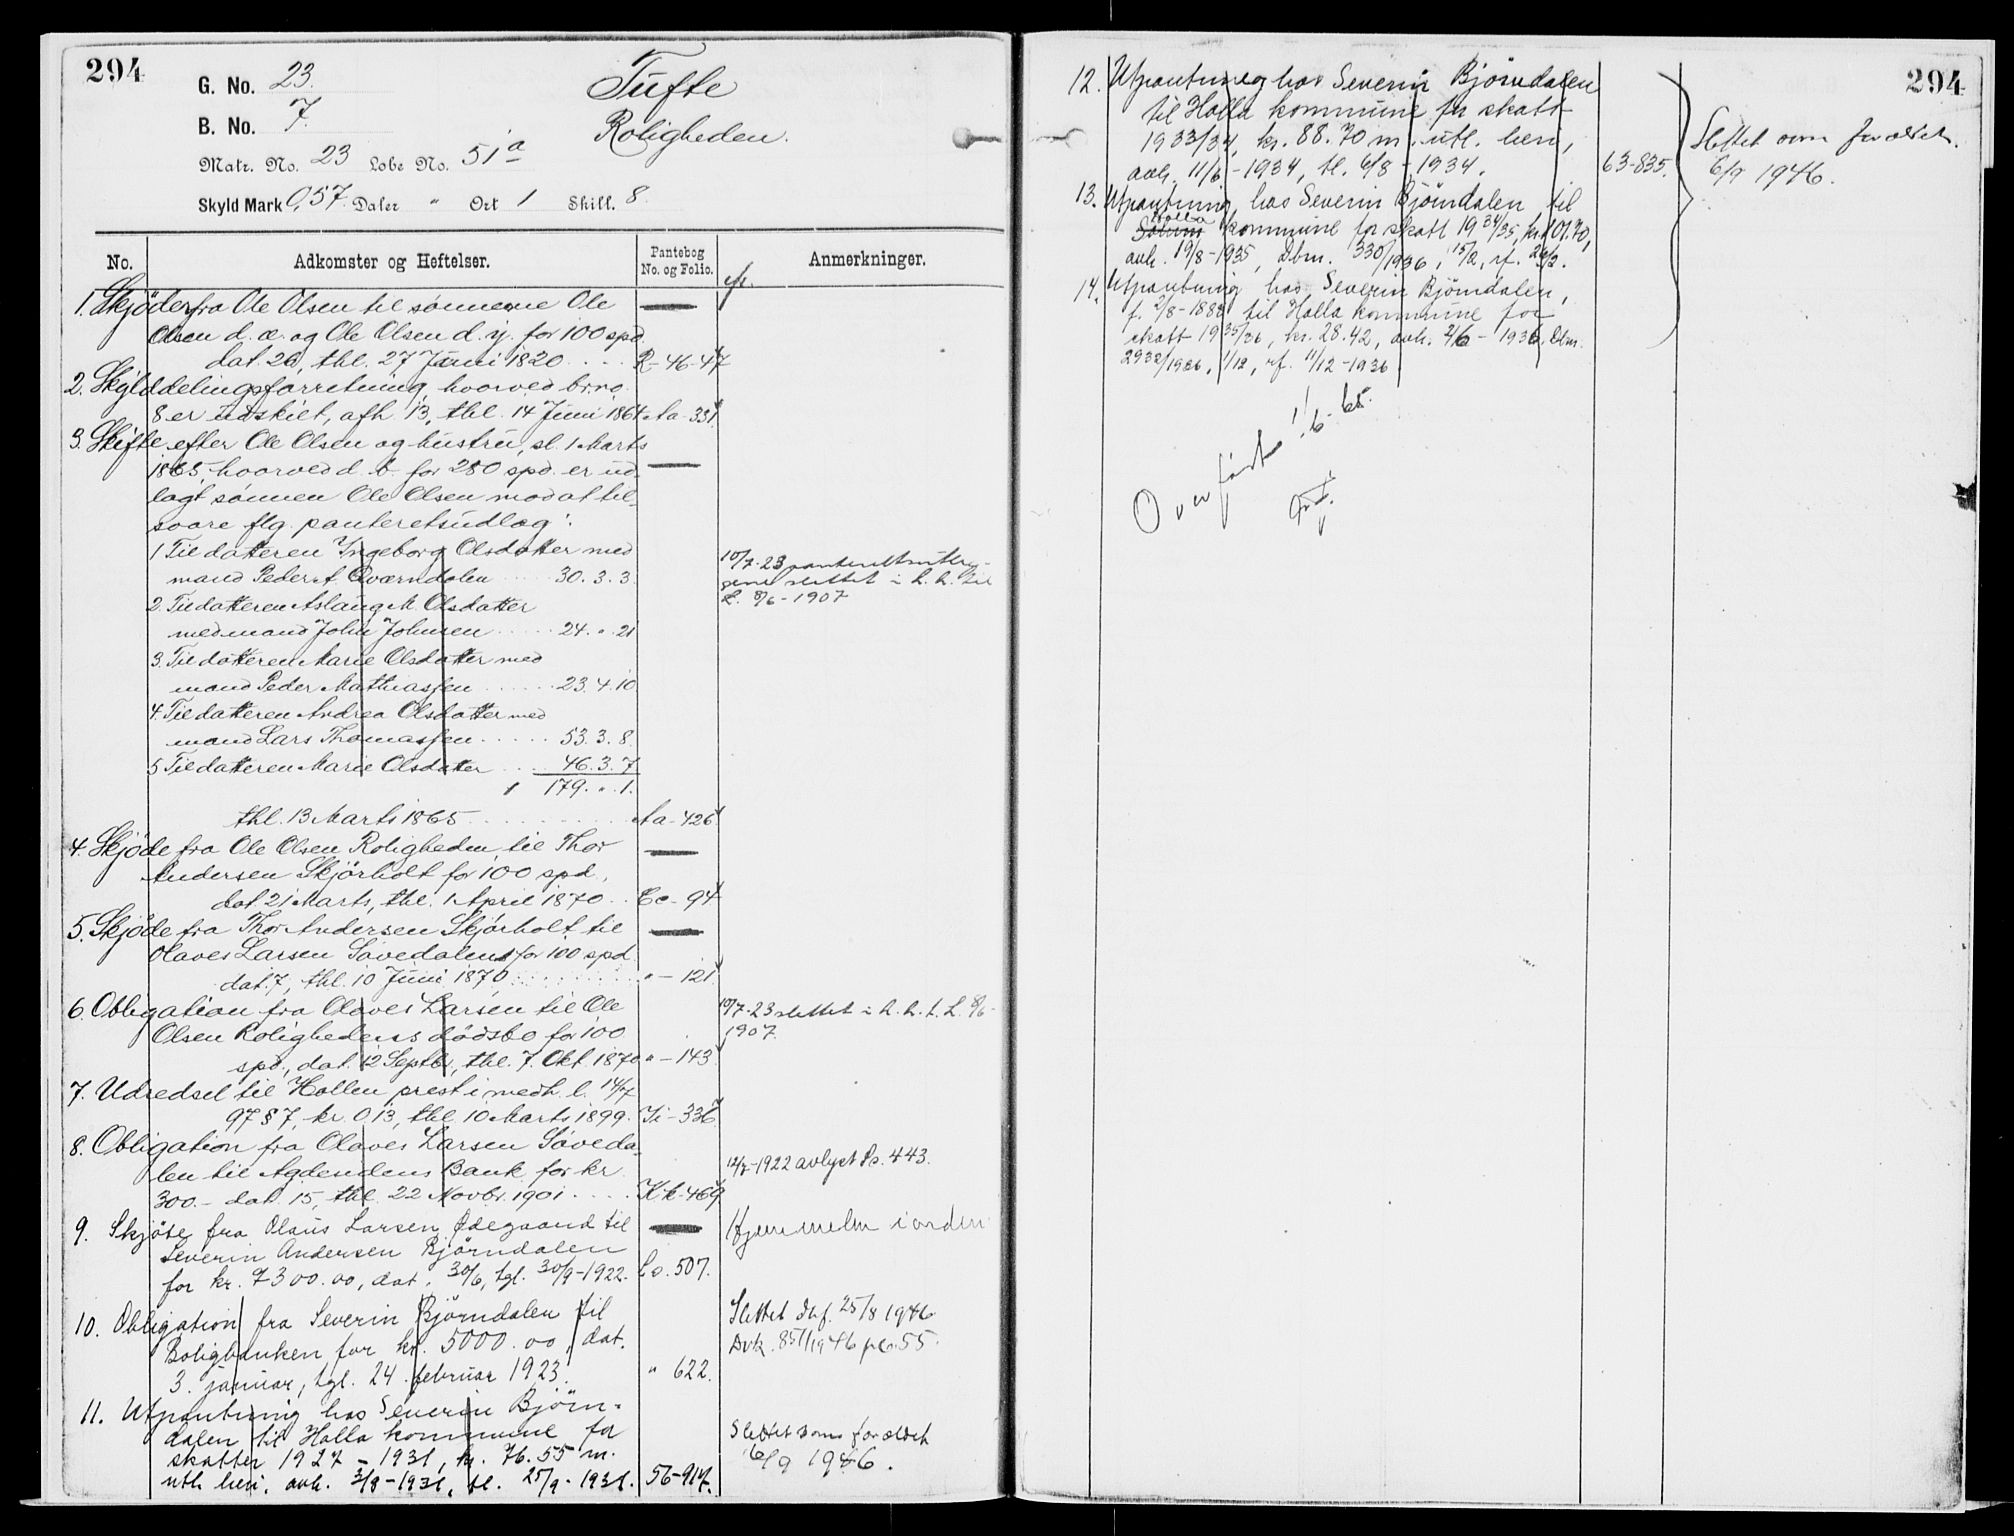 294
G. No. 23.
B. No. 7.
Matr. No. 23 Løbe No. 51a
Skyld Mark 0,57. Daler " Ort 1 Skill. 8.
Tufte
Roligheden.
No.
Adkomster og Heftelser.
Pantebog
No. og Folio.
Anmerkninger.
1. Skjöde fra Ole Olsen til sønnerne Ole
Olsen d. æ. og Ole Olsen d. y. for 100 spd.
dat. 26, thl. 27 Juni 1820 R-46-47
2. Skylddelingsforretning, hvorved brno.
8 er udskilt, afh. 13, thl. 14 Juni 1864 Aa-331
3. Skifte efter Ole Olsen og hustru, sl. 1 Marts
1865, hvorved d. b. for 280 spd. er ud-
lagt sønnen Ole Olsen mod at til-
svare flg. panteretsudlæg:
1 Til datteren Ingeborg Olsdatter med
mand Peder A. Qværndalen 30.3.3
10/7-23
slettet i h. h. til
L. 8/6-1907
2. Til datteren Aslaug M. Olsdatter
med mand John Johnsen 24. " 21
3. Til datteren Marie Olsdatter med
mand Peder Mathiassen 23.4.10
4. Til datteren Andrea Olsdatter med
mand Lars Thomassen 53.3.8.
5 Til datteren Marie Olsdatter 46.3.7
179. " 1.
thl. 13 Marts 1865 Aa-426
4. Skjöde fra Ole Olsen Roligheden til Thor
Andersen Skjörholt for 100 spd.,
dat. 21 Marts, thl. 1 April 1870 Cc-94
5. Skjöde fra Thor Andersen Skjörholt til
Olaves Larsen Sövedalen for 100 spd.
dat. 7, thl. 10 Juni 1870 " - 121
6. Obligation fra Olaves Larsen til Ole
Olsen Rolighedens dödsbo for 100
spd., dat. 12 Septbr., thl. 7. Okt. 1870 " - 143
10/7-23 slettet i h. h. t. L. 8/6-
1907.
7. Udredsel til Hollen prest i medh. l. 14/7
97 § 7, kr. 0.13, thl. 10 Marts 1899. Ii-336
8. Obligation fra Olaves Larsen Söveda-
len til Agdendens Bank for kr.
300.- dat. 15, thl. 22 Novbr. 1901 Kk-469
12/7-1922 avlyst Po. 443.
9. Skjöte fra Olaus Larsen Ödegaard til
Severin Andersen Björndalen
for kr. 7300.00, dat. 30/6, tgl. 30/9-1922. Co. 507.
Hjemmelen i orden
10. Obligation fra Severin Björndalen til
Boligbanken for kr. 5000.00, dat.
3. januar, tgl. 24 februar 1923. " 622.
Slettet 25/8 1946
Dbk. 851/1946 55.
11. Utpantning hos Severin Björn-
dalen til Holla kommune for
skatter 1927 - 1931, kr. 76.55 m.
utl. heri, avh. 3/8-1931, tl. 25/9-1931. 56-917.
Slettet som foreldet
6/9 1946.
294
12. Utpantning hos Severin Björndalen
til Holla kommune for skatt
1933/34, kr. 88.70 m. utl. heri,
avh. 11/6-1934, tl. 6/8-1934. 63-835.
Slettet som foreldet.
6/9 1946.
13. Utpantning hos Severin Björndalen til
Holla kommune for skatt 1934/35, kr. 101.70,
avh. 19/8-1935, Dbm. 330/1936, 15/2, rf. 26/2.
14. Utpantning hos Severin Björndalen,
f. 2/8-1882 til Holla kommune for
skatt 1935/36, kr. 28.42, avh. 2/6-1936, Dbm.
2932/1936, 1/12, rf. 11/12-1936
Overført 1/6-65.